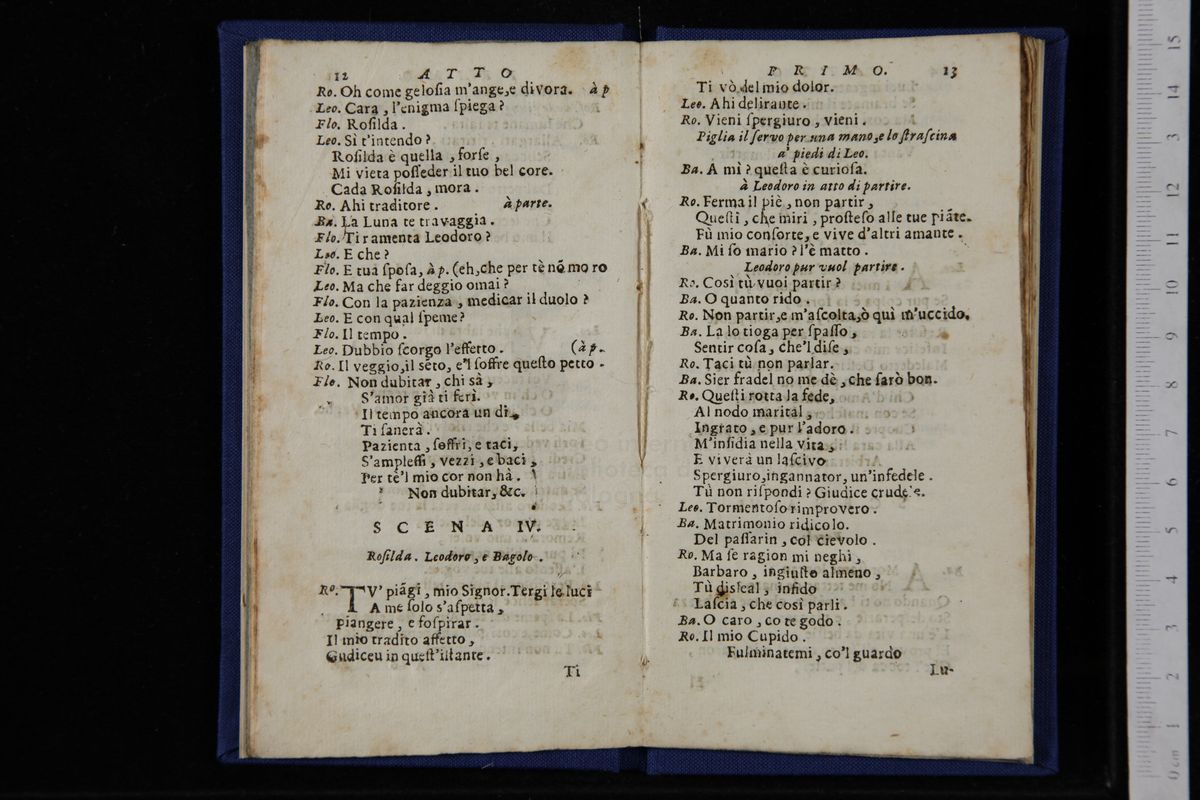 12 ATTO
Ro. Oh come geloſia m'ange,e divora. à p
Leo. Cara , l'enigma ſpiega ?
Flo. Roſilda .
Leo. Sì t'intendo ?
Roſilda è quella , forſe ,
Mi vieta poſſeder il tuo bel core.
Cada Roſilda , mora .
Ro. Ahi traditore . à parte.
Ba. La Luna te travaggia .
Flo. Ti ramenta Leodoro ?
Leo. E che ?
Flo. E tua ſpoſa, à p. (eh,che per tè nõ mo ro
Leo. Ma che far deggio omai ?
Flo. Con la pazienza , medicar il duolo ?
Leo. E con qual ſpeme ?
Flo. Il tempo .
Leo. Dubbio ſcorgo l'effetto . (à p.
Ro. Il veggio,il sèto, e'l ſoffre queſto petto .
Flo. Non dubitar , chi sà ,
S'amor già ti ferì.
Il tempo ancora un dì,
Ti ſanerà .
Pazienta , ſoffri, e taci,
S'ampleſſi , vezzi , e baci ,
Per tè'l mio cor non hà .
Non dubitar, &c.
SCENA IV.
Roſilda . Leodoro , e Bagolo .
Ro. TV' piãgi , mio Signor.Tergi le luci
A me ſolo s'aſpetta ,
piangere , e foſpirar .
Il mio tradito affetto ,
Gudiceu in queſt'iſtante .
Ti
PRIMO. 13
Ti vò del mio dolor.
Leo. Ahi delirante .
Ro. Vieni ſpergiuro , vieni .
Piglia il ſervo per una mano,e lo ſtraſcina
a' piedi di Leo.
Ba. A mì ? queſta è curioſa.
à Leodoro in atto di partire.
Ro. Ferma il piè , non partir ,
Queſti , che miri , proſteſo alle tue piãte.
Fù mio conſorte, e vive d'altri amante .
Ba. Mi ſo mario ? l'è matto .
Leodoro pur vuol partire .
Ro. Così tù vuoi partir ?
Ba. O quanto rido .
Ro. Non partir,e m'aſcolta,ò quì m'uccido.
Ba. La lo tioga per ſpaſſo ,
Sentir coſa , che'l diſe ,
Ro. Taci tù non parlar.
Ba. Sier fradel no me dè , che farò bon.
Ro. Queſti rotta la fede,
Al nodo marital ,
Ingrato , e pur l'adoro .
M'inſidia nella vita ,
E viverà un laſcivo
Spergiuro,ingannator, un'infedele .
Tù non riſpondi ? Giudice crudele.
Leo. Tormentoſo rimprovero .
Ba. Matrimonio ridicolo.
Del paſſarin , col cievolo .
Ro. Ma ſe ragion mi neghi ,
Barbaro , ingiuſto almeno ,
Tù disleal , infido
Laſcia , che così parli .
Ba. O caro , co te godo .
Ro. Il mio Cupido .
Fulminatemi , co'l guardo
Lu-